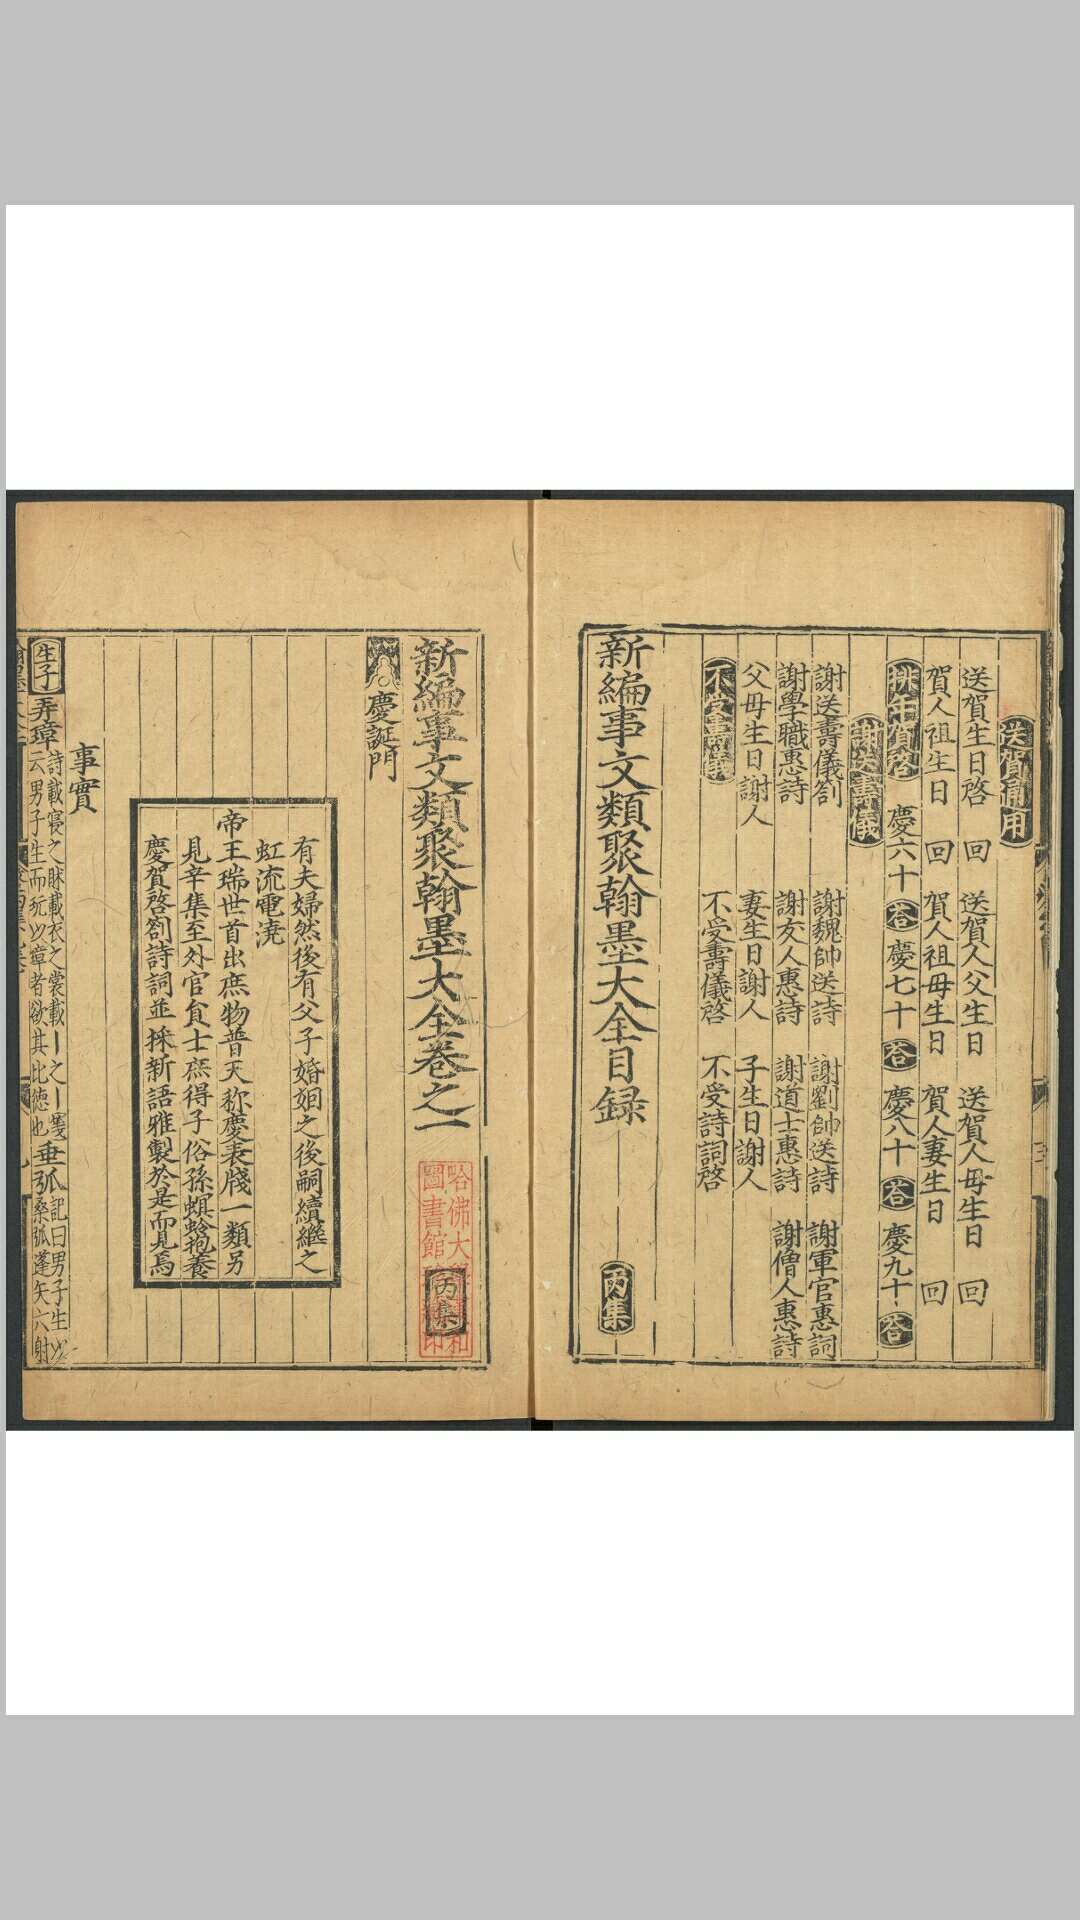 送賀通用
送賀生日啓　回　送賀人父生日　送賀人母生日　回
賀人祖生日　回　賀人祖母生日　賀人妻生日　回
排年賀啓　慶六十　荅　慶七十　荅　慶八十　荅　慶九十　荅
謝送壽儀
謝送壽儀劄　謝魏帥送詩　謝劉帥送詩　謝軍官惠詞
謝學職惠詩　謝友人惠詩　謝道士惠詩　謝僧人惠詩
父母生日謝人　妻生日謝人　子生日謝人
不受壽儀　不受壽儀啓　不受詩詞啓
新編事文類聚翰墨大全目録　丙集
新編事文類聚翰墨大全卷之一　丙集
哈佛大
圖書館
印
慶誕門
有夫婦然後有父子婚姻之後嗣續繼之
虹流電澆
帝王瑞世首出庶物普天称慶表牋一類另
見辛集至外官貟士庶得子俗孫螟蛉抱養
慶賀啓劄詩詞並採新語雅製於是而見焉
事實
生子　弄璋　詩載寝之牀載衣之裳載丨之丨箋
云男子生而玩以璋者欲其比德也　垂弧　記曰男子生以
桑弧蓬矢六射